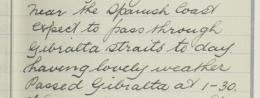 near the Spanish Coast
expect to pass through
Gibralta straits to day.
having lovely weather
Passed Gibralta at 1-30.